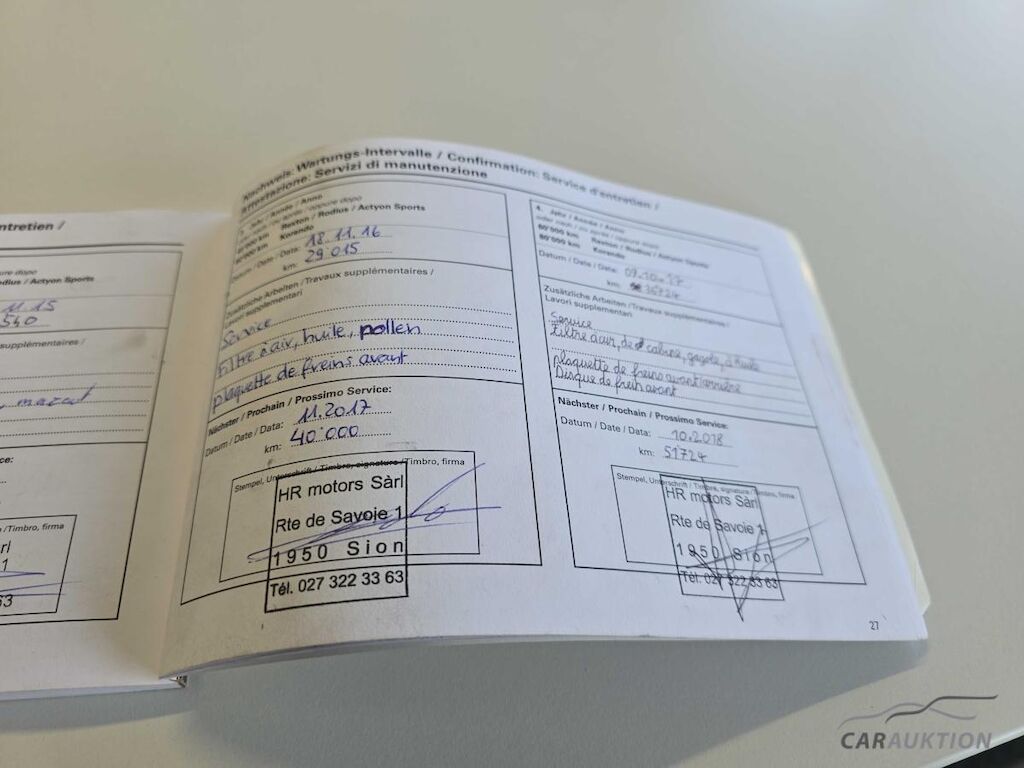 ntretien /
pure dopo
odius / Actyon Sports
11.15
540
supplémentaires /
ce:
/Timbro, firma
rl
1
63
Nachweis: Wartungs-Intervalle / Confirmation: Service d'entretien /
Attestazione: Servizi di manutenzione
3. Jahr / Année / Anno
oder nach / ou après / oppure dopo
Rexton / Rodius / Actyon Sports
Korando
18.11.16
Datum / Date / Data:
km: 29 015
Zusätzliche Arbeiten / Travaux supplémentaires /
Lavori supplementari
Service
Filtre à air, huile, pollen
plaquette de freins avant
Nächster / Prochain / Prossimo Service:
Datum / Date / Data: 11.2017
km: 40'000
Stempel, Unterschrift / Timbre, signature / Timbro, firma
HR motors Sàrl
Rte de Savoie 1
1950 Sion
Tél. 027 322 33 63
4. Jahr / Année / Anno
oder nach / ou après / oppure dopo
60'000 km Rexton / Rodius / Actyon Sports
80'000 km Korando
Datum / Date / Data: 09.10.17
km: 36724
Zusätzliche Arbeiten / Travaux supplémentaires /
Lavori supplementari
Service
Filtre à air, de cabine, gazole, à huile
plaquette de freins avant/arrière
Disque de frein avant
Nächster / Prochain / Prossimo Service:
Datum / Date / Data: 10.2018
km: 51724
Stempel, Unterschrift / Timbre, signature / Timbro, firma
HR motors Sàrl
Rte de Savoie 1
1950 Sion
Tél. 027 322 33 63
27
CARAUKTION